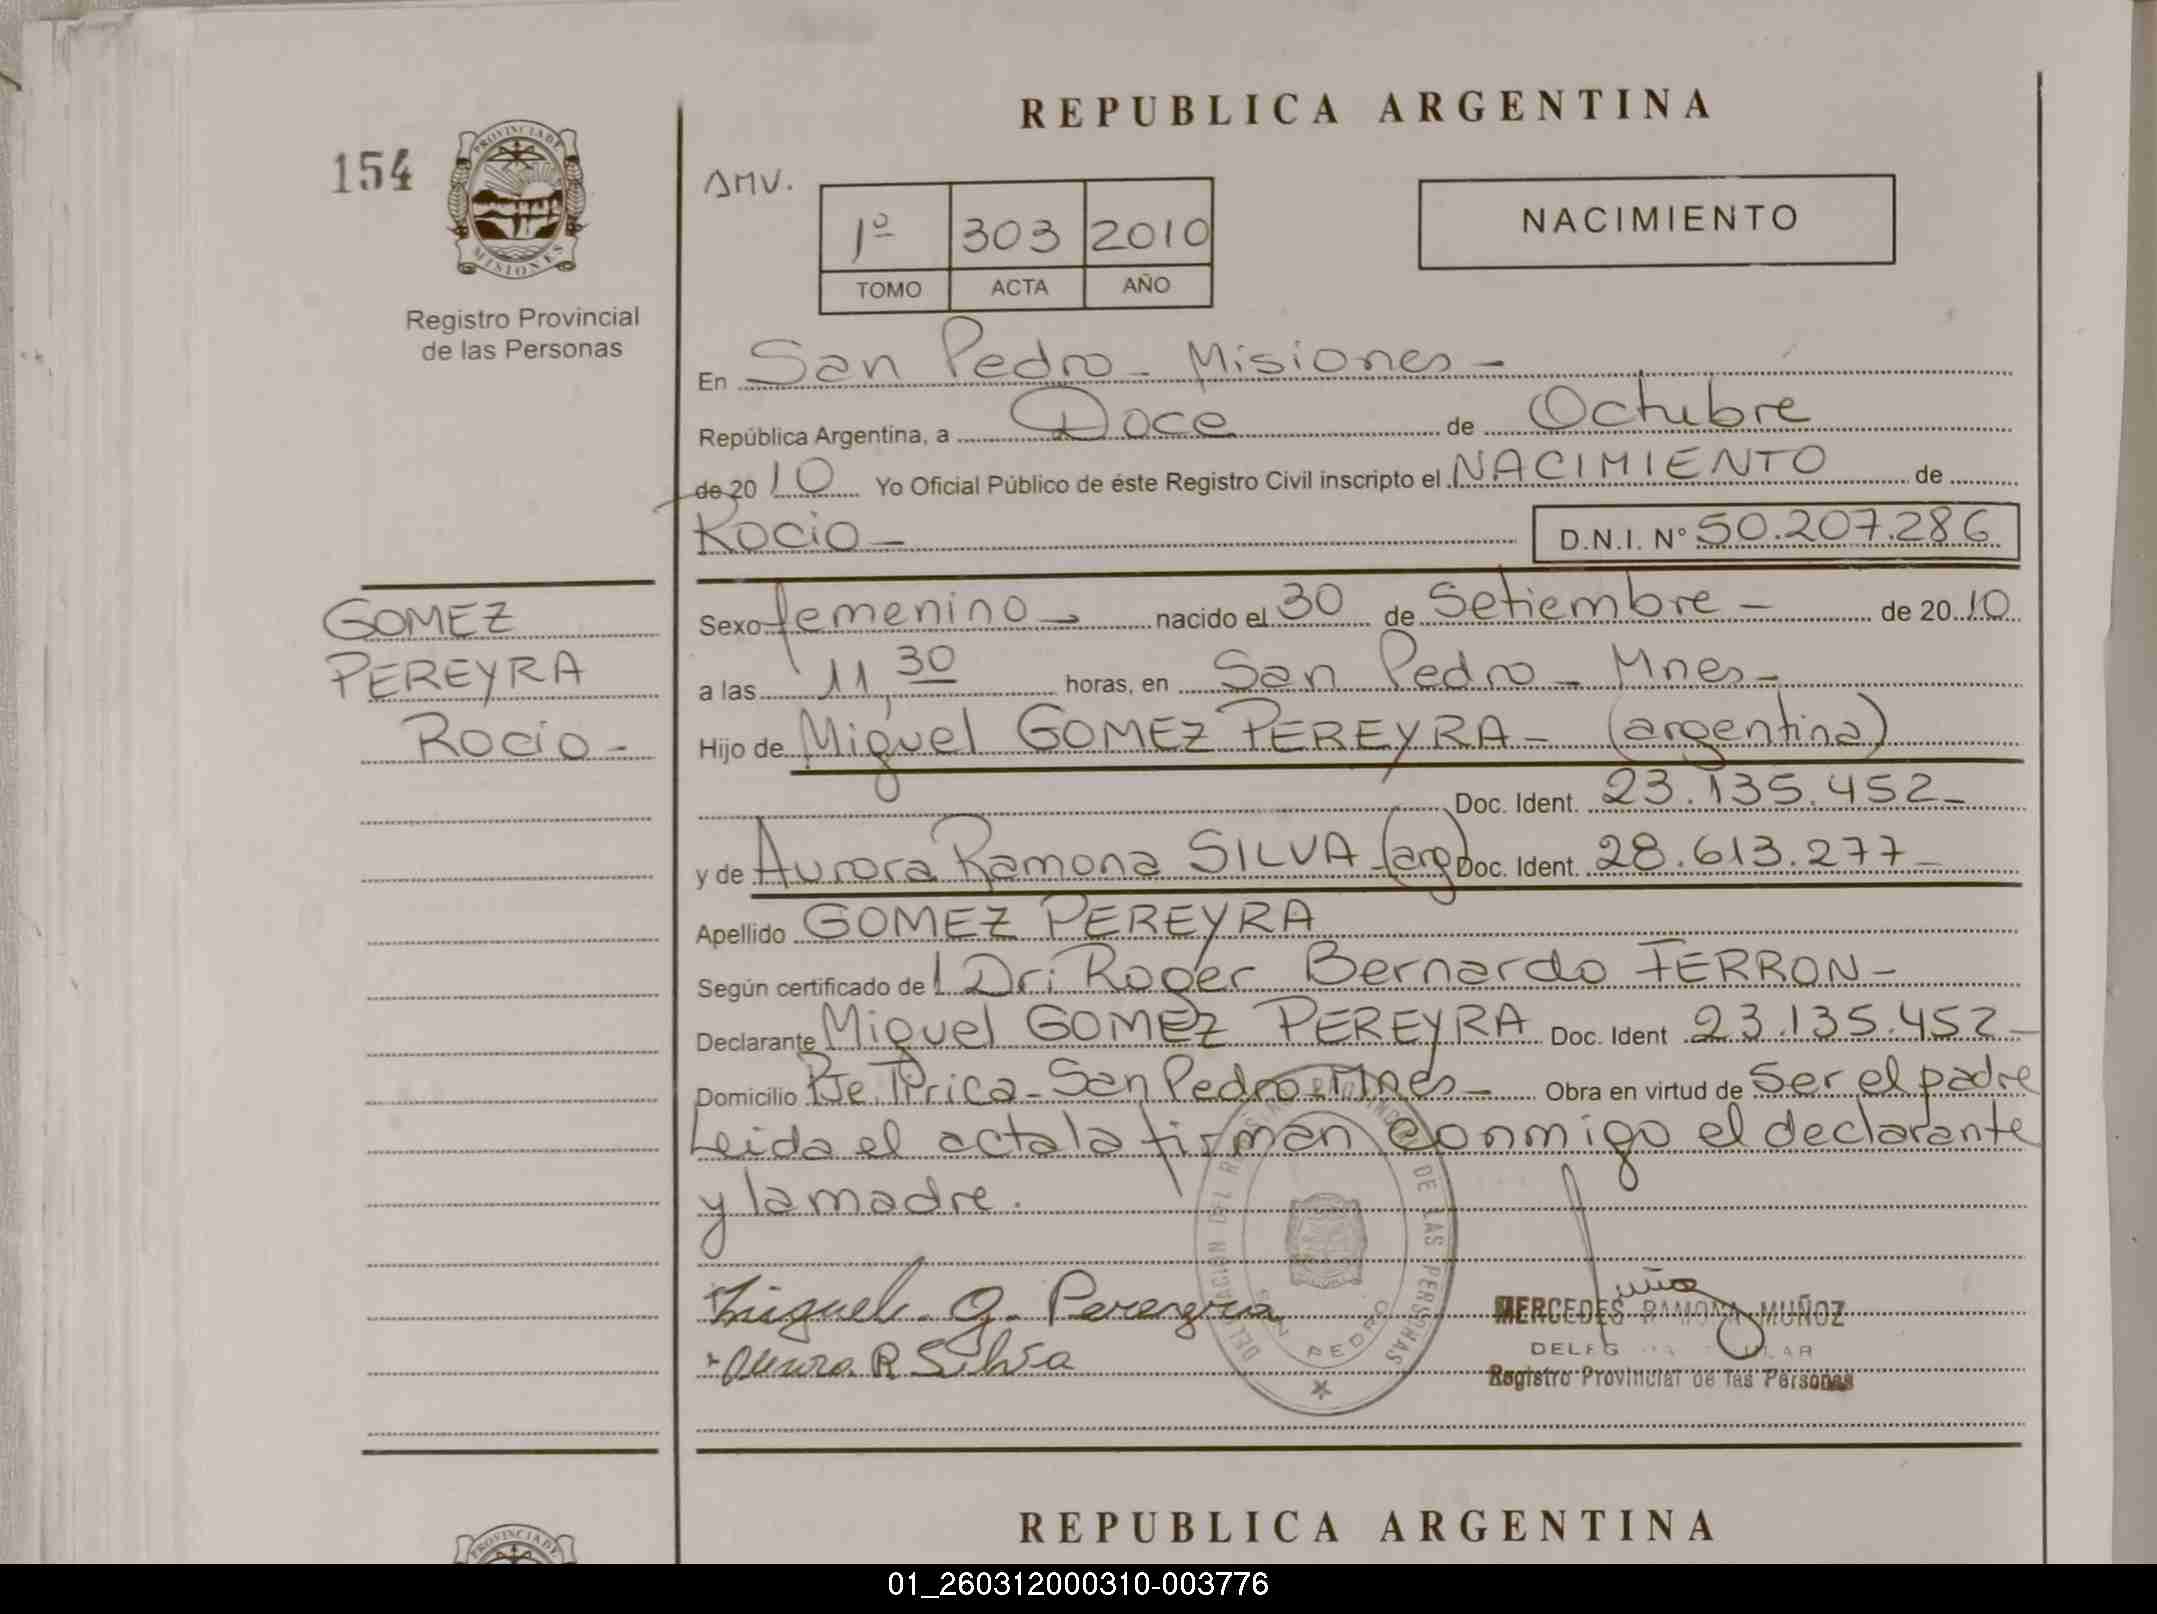 REPUBLICA ARGENTINA
154
PROVINCIA DE
MISIONES
Registro Provincial
de las Personas
AMV.
1º 303 2010
TOMO ACTA AÑO
NACIMIENTO
En San Pedro - Misiones -
República Argentina, a Doce de Octubre
de 20 10 Yo Oficial Público de éste Registro Civil inscripto el NACIMIENTO de
Rocio - D.N.I. Nº 50.207.286
GOMEZ
PEREYRA
Rocio -
Sexo femenino - nacido el 30 de Setiembre - de 20 10
a las 11,30 horas, en San Pedro - Mnes -
Hijo de Miguel GOMEZ PEREYRA - (argentina)
Doc. Ident. 23.135.452 -
y de Aurora Ramona SILVA (arg) Doc. Ident. 28.613.277 -
Apellido GOMEZ PEREYRA
Según certificado de l Dr: Roger Bernardo FERRON -
Declarante Miguel GOMEZ PEREYRA Doc. Ident 23.135.452 -
Domicilio Pje. - San Pedro - Mnes - Obra en virtud de Ser el padre
Leida el acta la firman conmigo el declarante
y la madre.
DELEGACION DEL DE LAS PERSONAS
SAN PEDRO
Miguel G. Pereyra
R Silva
MERCEDES RAMONA MUÑOZ
Registro Provincial de las Personas
REPUBLICA ARGENTINA
PROVINCIA DE
01_260312000310-003776